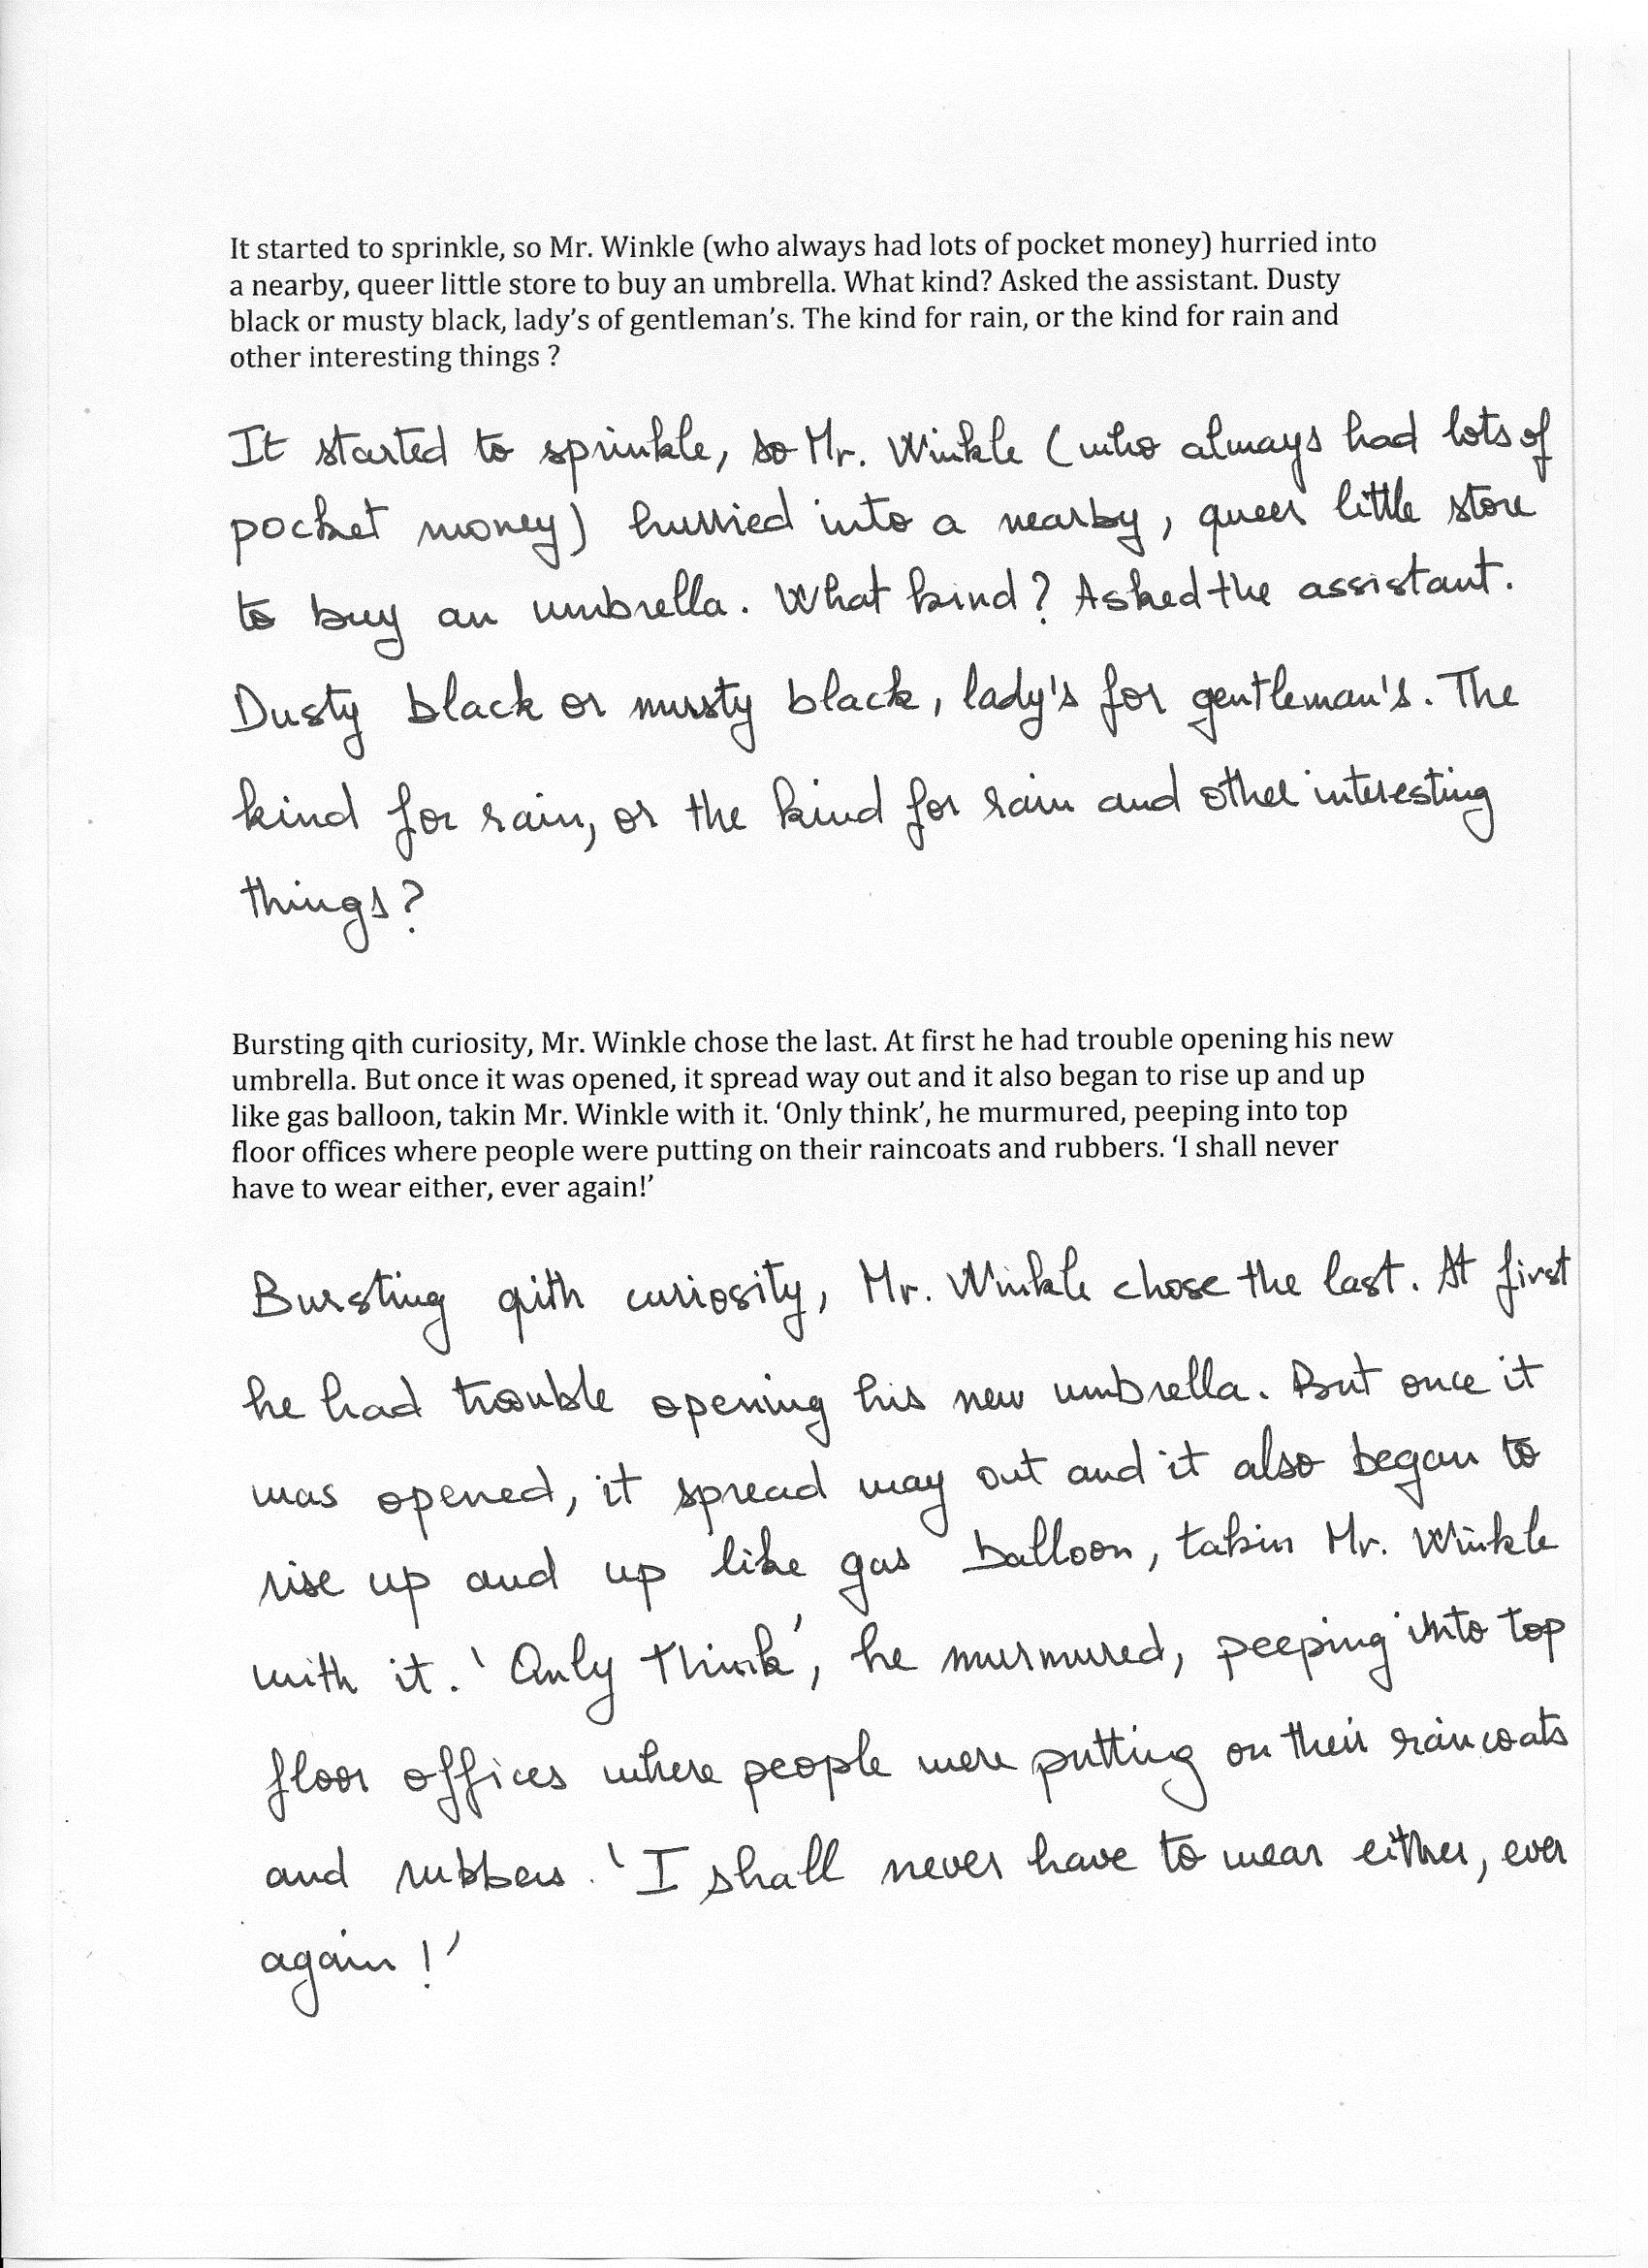 It started to sprinkle, so Mr. Winkle (who always had lots of pocket money) hurried into
a nearby, queer little store to buy an umbrella. What kind? Asked the assistant. Dusty
black or musty black, lady’s of gentleman’s. The kind for rain, or the kind for rain and
other interesting things ?
It started to sprinkle, so Mr. Winkle (who always had lots of
pocket money) hurried into a nearby, queer little store
to buy an umbrella. What kind? Asked the assistant.
Dusty black or mursty black, lady's for gentleman's. The
kind for rain, or the kind for rain and other interesting
things?
Bursting qith curiosity, Mr. Winkle chose the last. At first he had trouble opening his new
umbrella. But once it was opened, it spread way out and it also began to rise up and up
like gas balloon, takin Mr. Winkle with it. ‘Only think’, he murmured, peeping into top
floor offices where people were putting on their raincoats and rubbers. ‘I shall never
have to wear either, ever again!’
Bursting qith curiosity, Mr. Winkle chose the last. At first
he had trouble opening his new umbrella. But once it
was opened, it spread way out and it also began to
rise up and up like gas balloon, takin Mr. Winkle
with it. 'Only think', he murmured, peeping into top
floor offices where people were putting on their raincoats
and rubbers. 'I shall never have to wear either, ever
again!'